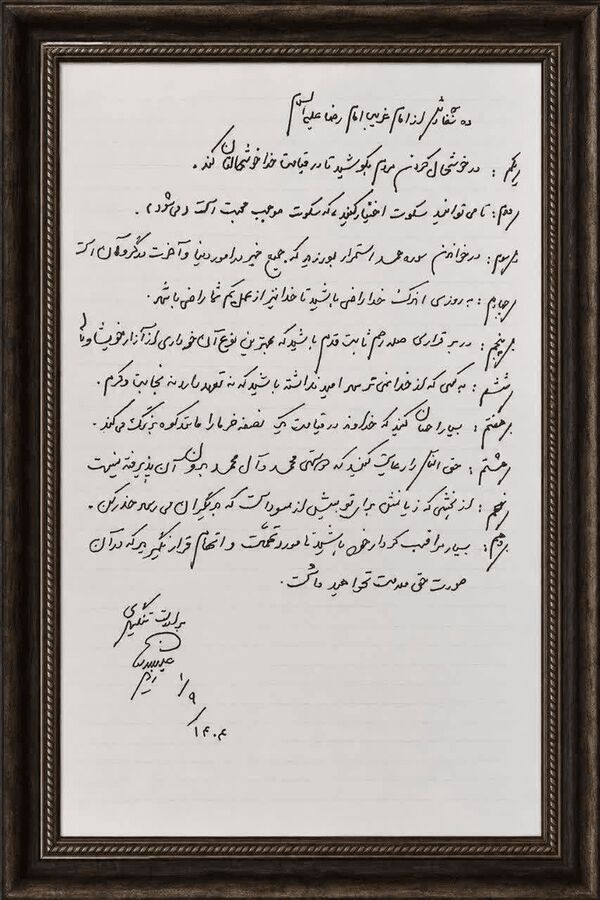 ده سفارش از امام غریب امام رضا علیه السلام
یکم: در خوشحال کردن مردم بکوشید تا در قیامت خدا خوشحالتان کند.
دوم: تا می‌توانید سکوت اختیار کنید، که سکوت موجب محبت است (می‌شود).
سوم: در خواندن سوره حمد استمرار بورزید که جمیع خیر در امور دنیا و آخرت در گرو آن است
چهارم: به روزی اندک خدا راضی باشید تا خدا نیز از عمل کم شما راضی باشد.
پنجم: در برقراری صله رحم ثابت قدم باشید که بهترین نوع آن خودداری از آزار خویشاوندان
ششم: به کسی که از خدا نمی‌ترسد امید نداشته باشید که نه تعهد دارد نه نجابت و کرم.
هفتم: بسیار احسان کنید که خداوند در قیامت یک نصفه خرما را مانند کوه بزرگ می‌کند.
هشتم: حق الناس را رعایت کنید که دوستی محمد و آل محمد بدون آن پذیرفته نیست
نهم: از بخششی که زیانش برای تو بیش از سود است که به دیگران می‌رسد حذر کن.
دهم: بسیار مراقب کردار خود باشید تا مورد تهمت و اتهام قرار نگیرید که در آن
صورت حق ملامت نخواهید داشت.
۱/۹
/۱۴۰۴